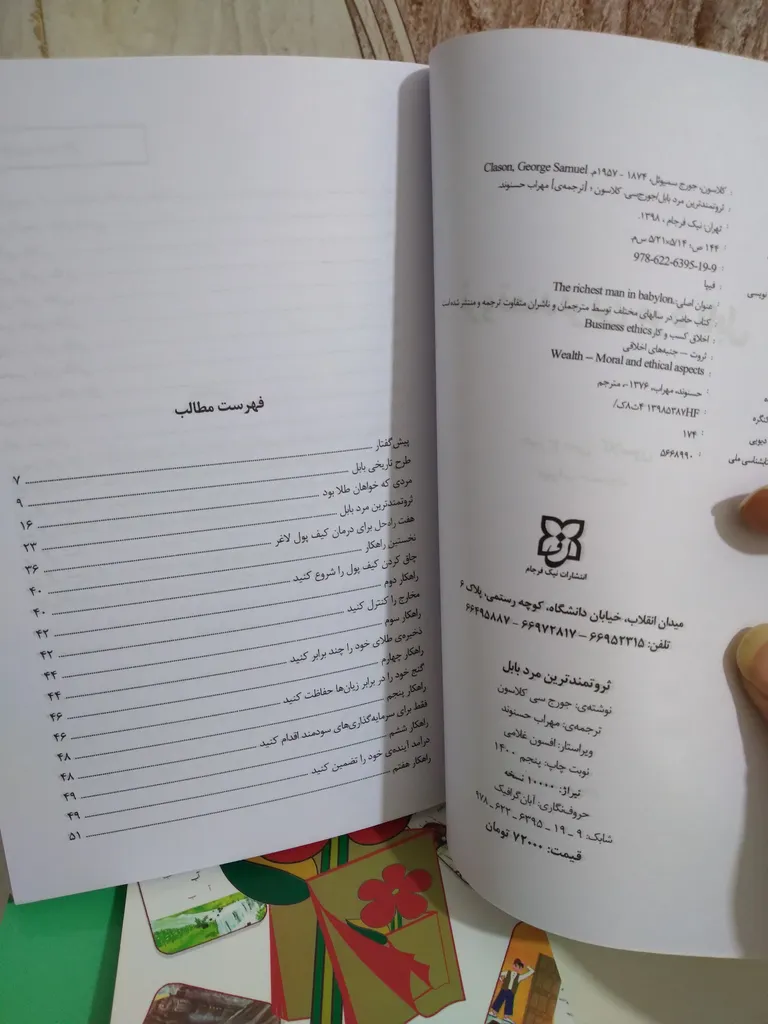 کلاسون، جورج سمیوئل، ۱۸۷۴ - ۱۹۵۷م. Clason, George Samuel
ثروتمندترین مرد بابل/جورج‌سی. کلاسون ؛ [ترجمه‌ی] مهراب حسنوند.
تهران: نیک فرجام ، ۱۳۹۸.
۱۴۴ ص؛ ۵/۱۴×۵/۲۱ س‌م.
978-622-6395-19-9
نویسی : فیپا
عنوان اصلی: The richest man in babylon
کتاب حاضر در سالهای مختلف توسط مترجمان و ناشران متفاوت ترجمه و منتشر شده‌است
اخلاق کسب و کار Business ethics
ثروت -- جنبه‌های اخلاقی
Wealth -- Moral and ethical aspects
حسنوند، مهراب، ۱۳۷۶-، مترجم
کنگره : HF۵۳۸۷ ۱۳۹۸ ۴ث۸ک/
دیویی : ۱۷۴
کتابشناسی ملی : ۵۶۶۸۹۹۰
انتشارات نیک فرجام
میدان انقلاب، خیابان دانشگاه، کوچه رستمی، پلاک ۶
تلفن: ۶۶۹۵۲۳۱۵ - ۶۶۹۷۲۸۱۷ - ۶۶۴۹۵۸۸۷
ثروتمندترین مرد بابل
نوشته‌ی: جورج سی کلاسون
ترجمه‌ی: مهراب حسنوند
ویراستار: افسون غلامی
نوبت چاپ: پنجم ۱۴۰۰
تیراژ: ۱۰۰۰۰ نسخه
حروف‌نگاری: آبان‌گرافیک
شابک: ۹ - ۱۹ - ۶۳۹۵ - ۶۲۲ - ۹۷۸
قیمت: ۷۲۰۰۰ تومان
فهرست مطالب
پیش‌گفتار ........ ۷
طرح تاریخی بابل ........ ۹
مردی که خواهان طلا بود ........ ۱۶
ثروتمندترین مرد بابل ........ ۲۳
هفت راه‌حل برای درمان کیف پول لاغر ........ ۳۶
نخستین راهکار ........ ۴۰
چاق کردن کیف پول را شروع کنید ........ ۴۰
راهکار دوم ........ ۴۲
مخارج را کنترل کنید ........ ۴۲
راهکار سوم ........ ۴۴
ذخیره‌ی طلای خود را چند برابر کنید ........ ۴۴
راهکار چهارم ........ ۴۶
گنج خود را در برابر زیان‌ها حفاظت کنید ........ ۴۶
راهکار پنجم ........ ۴۸
فقط برای سرمایه‌گذاری‌های سودمند اقدام کنید ........ ۴۸
راهکار ششم ........ ۴۹
درآمد آینده‌ی خود را تضمین کنید ........ ۴۹
راهکار هفتم ........ ۵۱